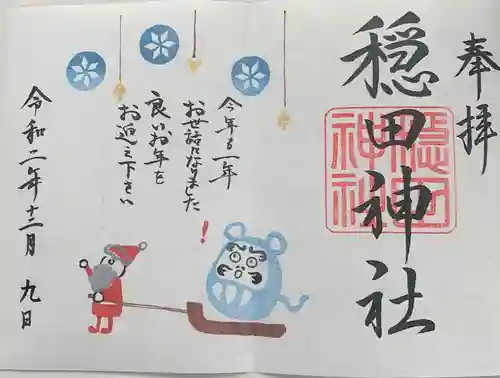 奉拝
穏田神社
穏田神社
今年も一年
お世話になりました
良いお年を
お迎え下さい
令和二年十二月九日
!